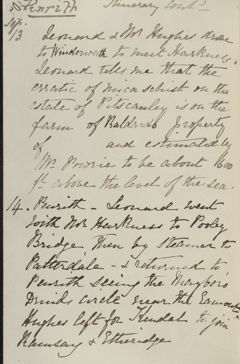 Penrith Itinerary Cont.
Sep.
13 Leonard & Mr Hughes drove
to Windermere to meet Harkness.
Leonard tells me that the
erratic of mica schist on the
estate of Pitscanley is on the
farm of Baldardo property
of and estimated by
Mr Powrie to be about 600
ft above the level of the sea.
14. Penrith - Leonard went
with Mr Harkness to Pooley
Bridge then by Steamer to
Patterdale - & returned to
Penrith seeing the Mayboro
Druid circle near the Eamont
Hughes left for Kendal to join
Ramsay & Etheridge